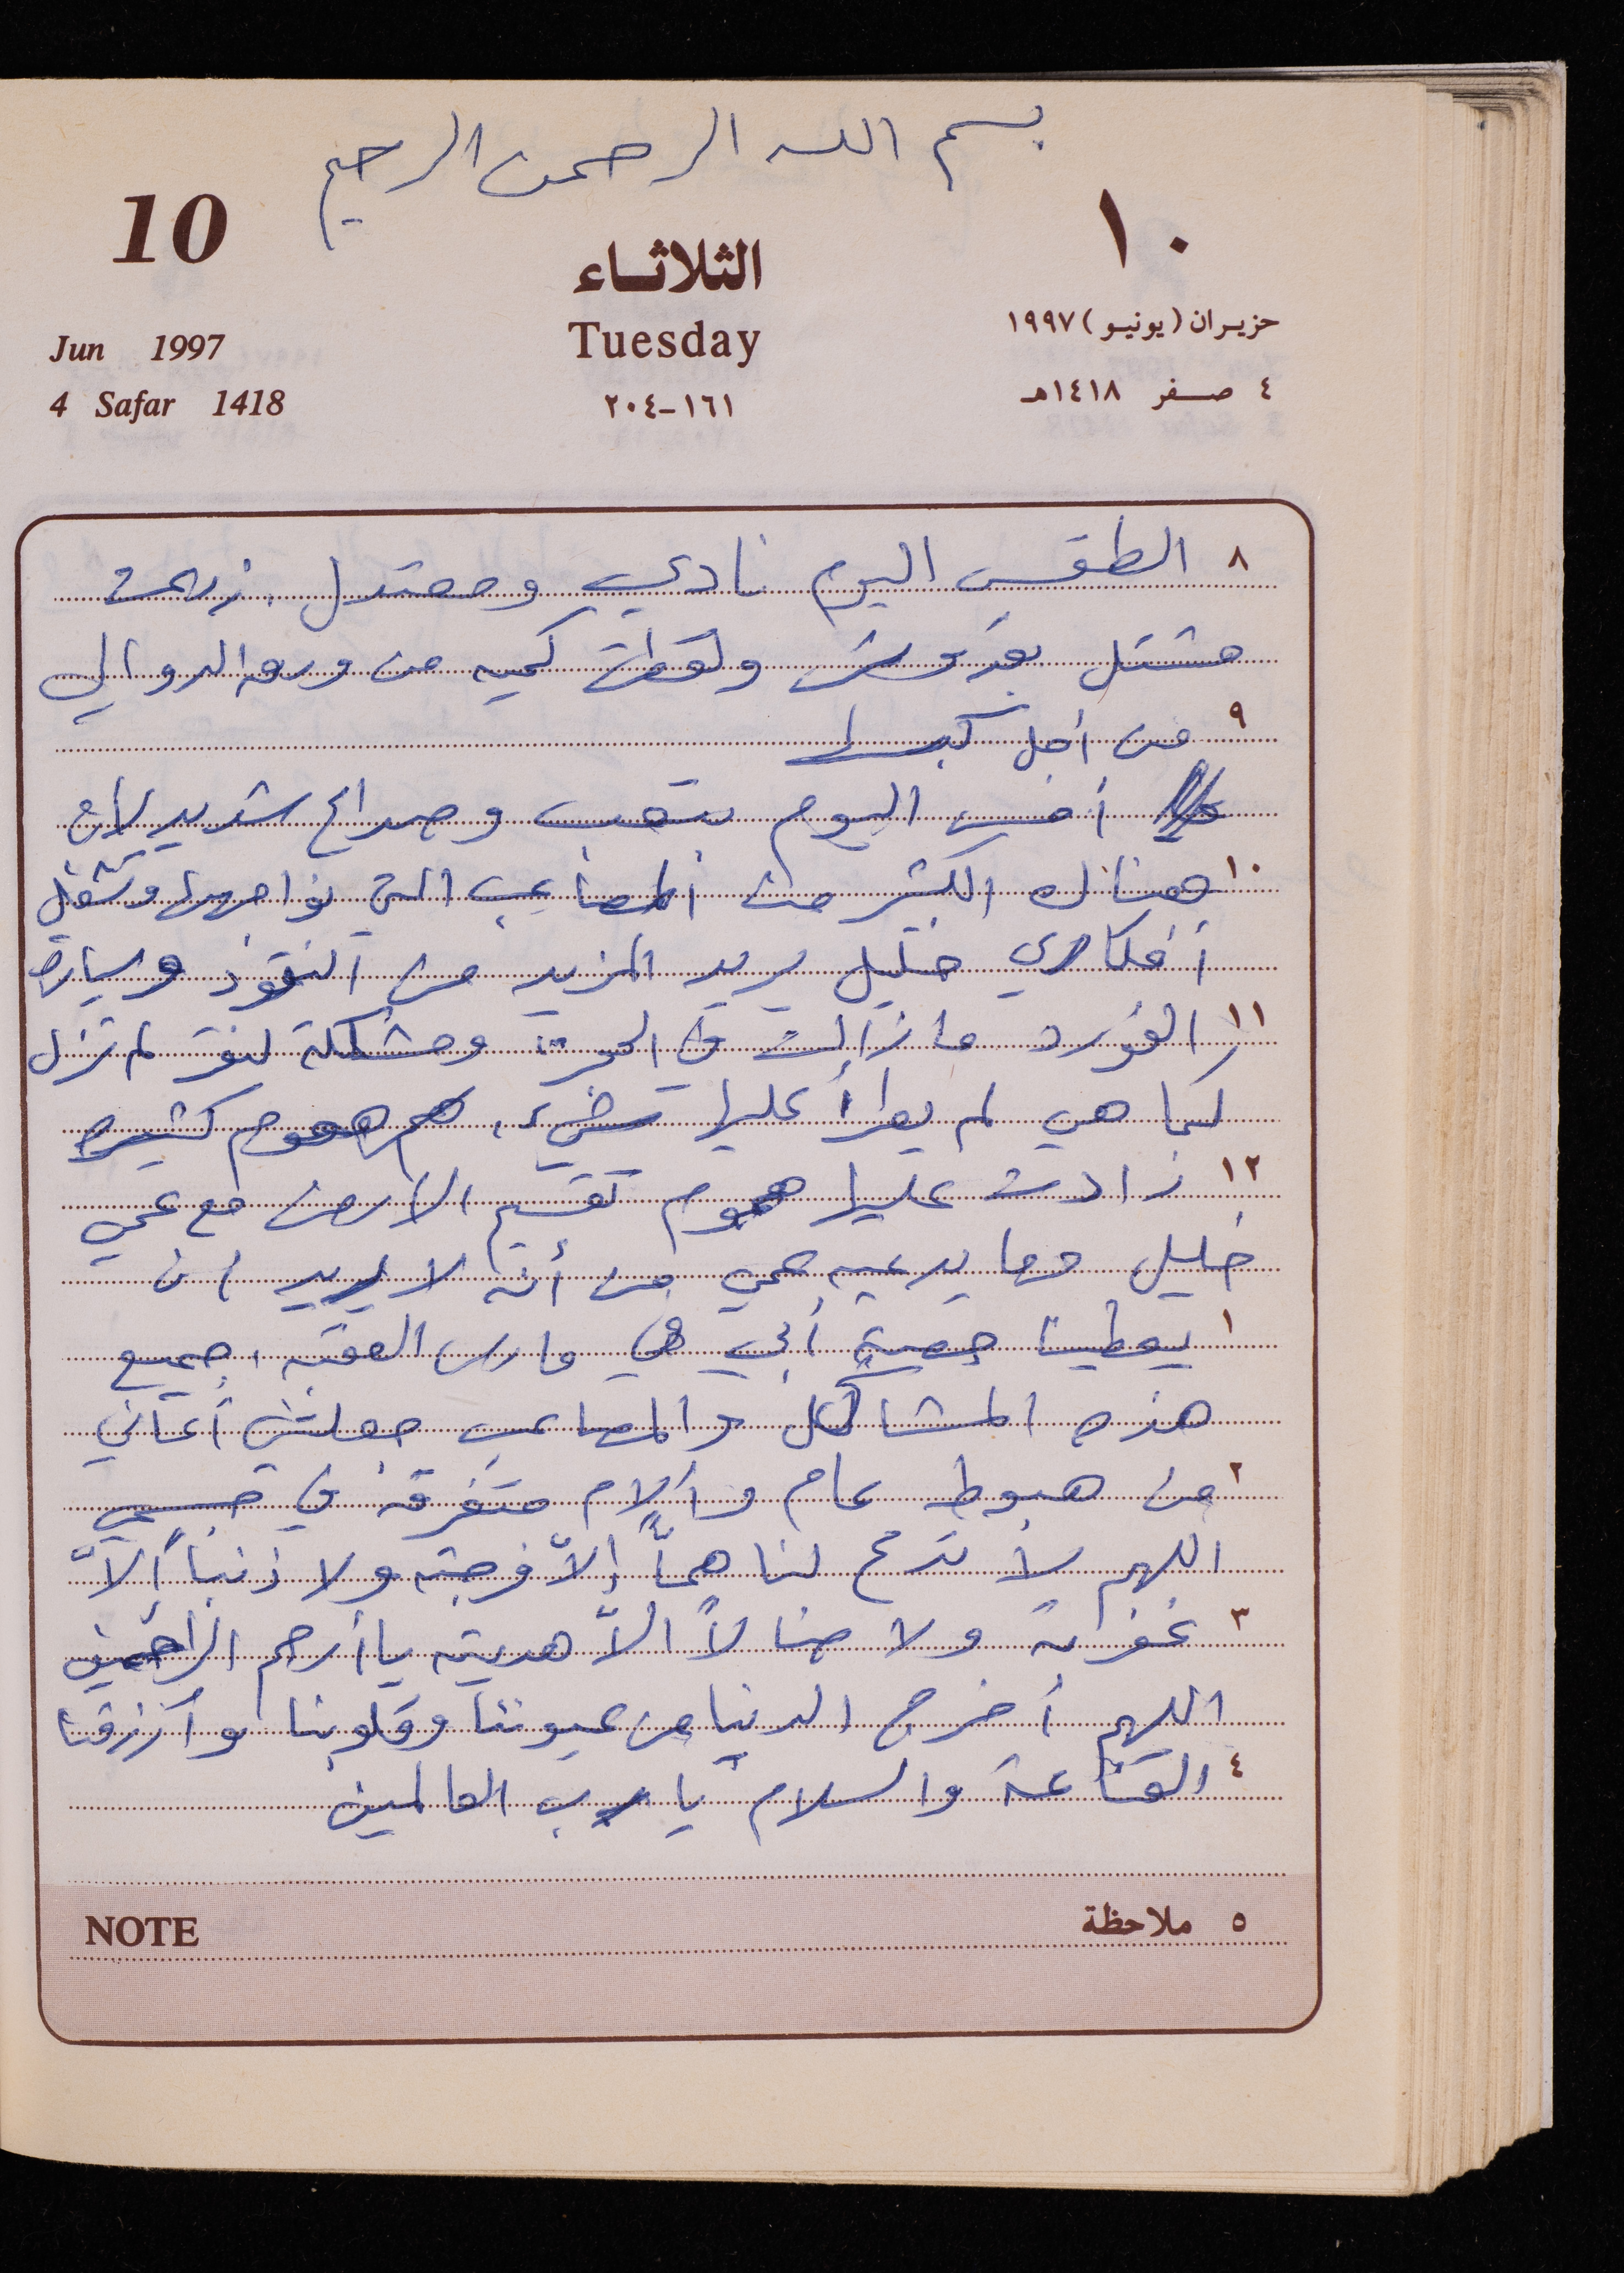 بسم الله الرحمن الرحيم
10
١٠
الثلاثاء
Jun 1997
Tuesday
حزيران (يونيو) ١٩٩٧
4 Safar 1418
١٦١-٢٠٤
٤ صفر ١٤١٨هـ
٨ الطقس اليوم نادي ومعتدل.
مشتل ولقطت كميه من ورق الدوالي
٩ من أجل كبسها
أحس اليوم بتعب وصداع شديد لان
١٠ هناك الكثير من المصاعب التي نواجهها وتشغل
أفكاري خليل يريد المزيد من النقود وسيارة
١١ الفورد ما زالت في ومشكلة لم تزل
كما هي لم يطرأ عليها شيء، هموم كثيره
١٢ زادت عليها هموم تقسيم الارض مع عمي
خليل وما يدعيه عمي من أنه لا يريد ان
١ يعطينا حصة أبي في مارس العقبه، جميع
هذه المشاكل والمصاعب جعلتني أعاني
٢ من هبوط عام وآلام متفرقه في جسمي
اللهم لا تدع لنا هماً إلاّ فرجته ولا ذنباً ألاّ
٣ غفرته ولا ضالاً الاّ هديته يا أرحم الراحمين
اللهم أخرج الدنيا من عيوننا وقلوبنا وأرزقنا
٤ القناعة والسلام يا رب العالمين
NOTE
٥ ملاحظة